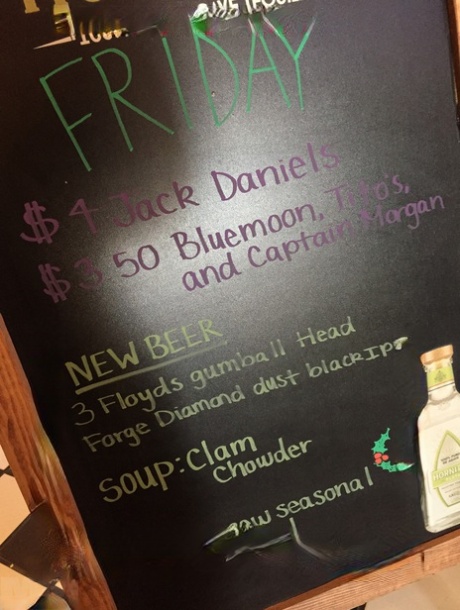 FRIDAY
$4 Jack Daniels
$3 50 Bluemoon, Tito's,
and Captain Morgan
NEW BEER
3 Floyds gumball Head
Forge Diamond dust black IPA
Soup: Clam
Chowder
seasonal